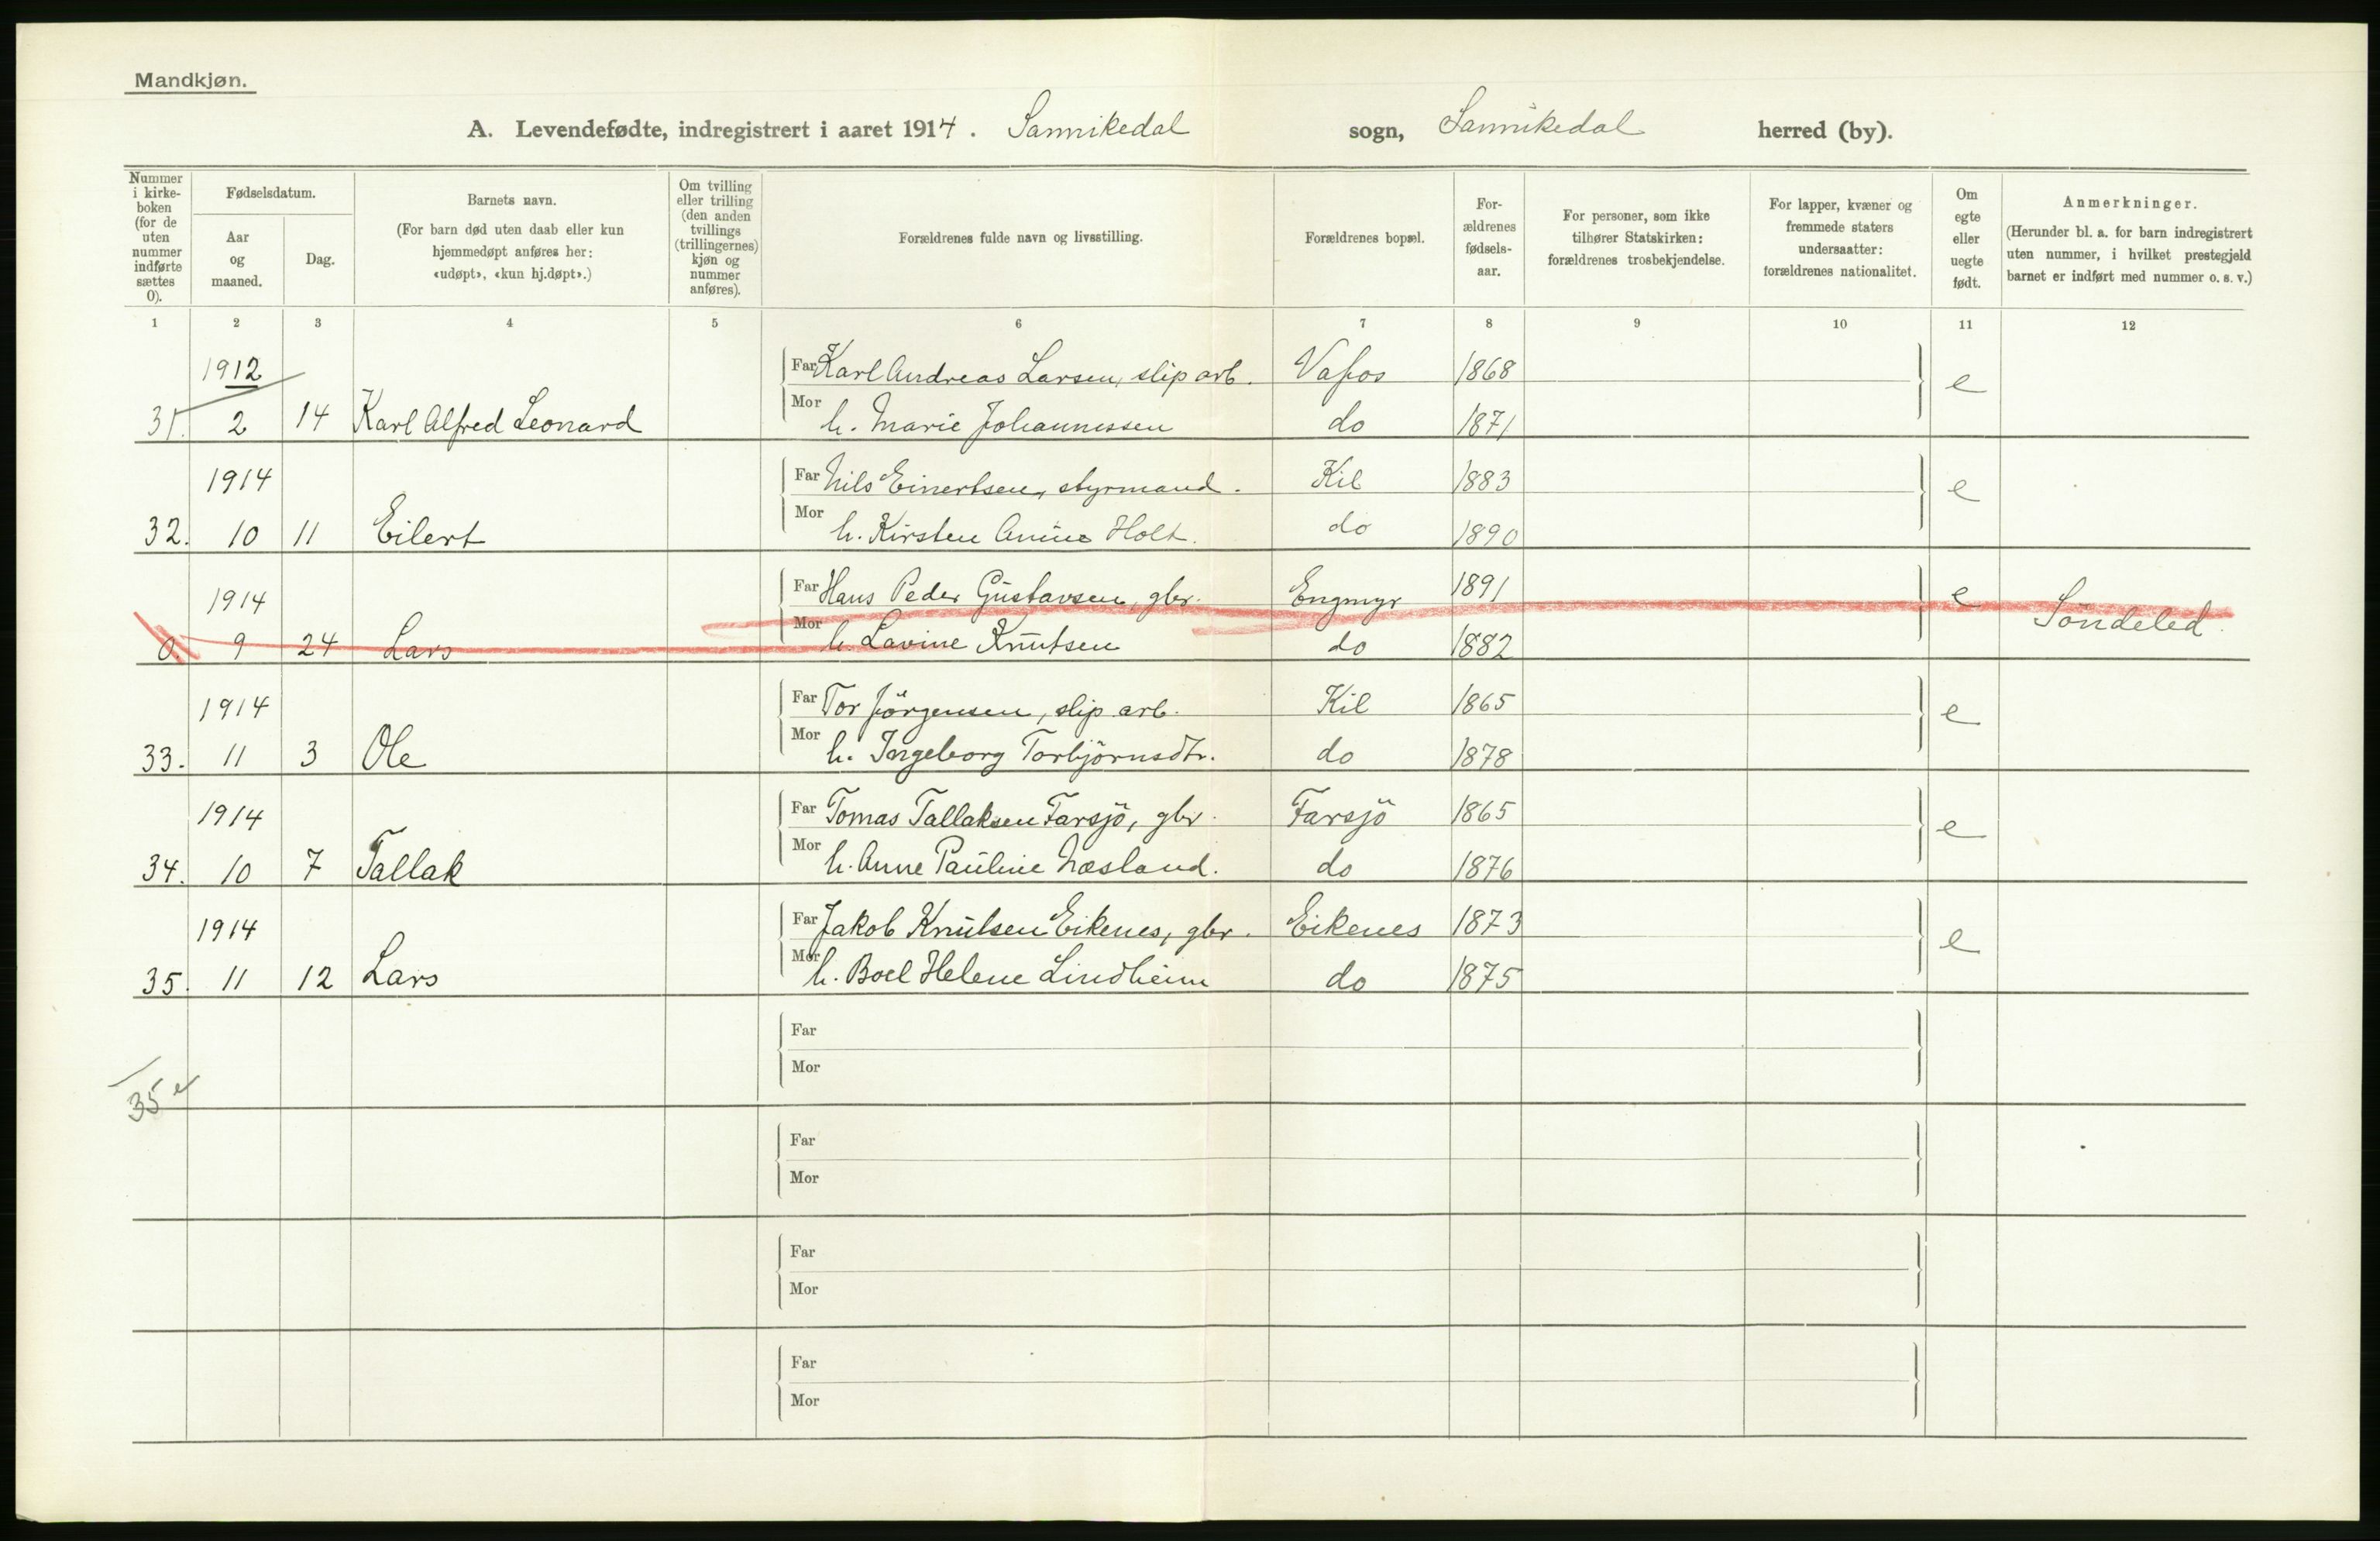 Mandkjøn.
A. Levendefødte, indregistrert i aaret 1914. Sannikedal sogn, Sannikedal herred (by).
Nummer i kirke-boken (for de uten nummer indførte sættes 0).
Fødselsdatum.
Aar og maaned.
Dag.
Barnets navn.
(For barn død uten daab eller kun hjemmedøpt anføres her: «udøpt», «kun hj.døpt».)
Om tvilling eller trilling (den anden tvillings (trillingernes) kjøn og nummer anføres).
Forældrenes fulde navn og livsstilling.
Forældrenes bopæl.
For-ældrenes fødsels-aar.
For personer, som ikke tilhører Statskirken: forældrenes trosbekjendelse.
For lapper, kvæner og fremmede staters undersaatter: forældrenes nationalitet.
Om egte eller uegte født.
Anmerkninger.
(Herunder bl. a. for barn indregistrert uten nummer, i hvilket prestegjeld barnet er indført med nummer o. s. v.)
1 2 3 4 5 6 7 8 9 10 11 12
1912 Far Karl Andreas Larsen, slip arb. Vafos 1868 e
31. 2 14 Karl Alfred Leonard Mor h. Marie Johannessen do 1871
1914 Far Nils Einertsen, styrmand. Kil 1883 e
32. 10 11 Eilert Mor h. Kirsten Anine Holt. do 1890
1914 Far Hans Peder Gustavsen, gbr. Engmyr 1891 e Söndeled.
0. 9 24 Lars Mor h. Lavine Knutsen do 1882
1914 Far Tor Jörgensen, slip arb. Kil 1865 e
33. 11 3 Ole Mor h. Ingeborg Torbjörnsdtr. do 1878
1914 Far Tomas Tallaksen Farsjö, gbr. Farsjö 1865 e
34. 10 7 Tallak Mor h. Anne Pauline Næsland. do 1876
1914 Far Jakob Knutsen Eikenes, gbr. Eikenes 1873 e
35. 11 12 Lars Mor h. Boel Helene Lindheim do 1875
Far
Mor
35 e
Far
Mor
Far
Mor
Far
Mor